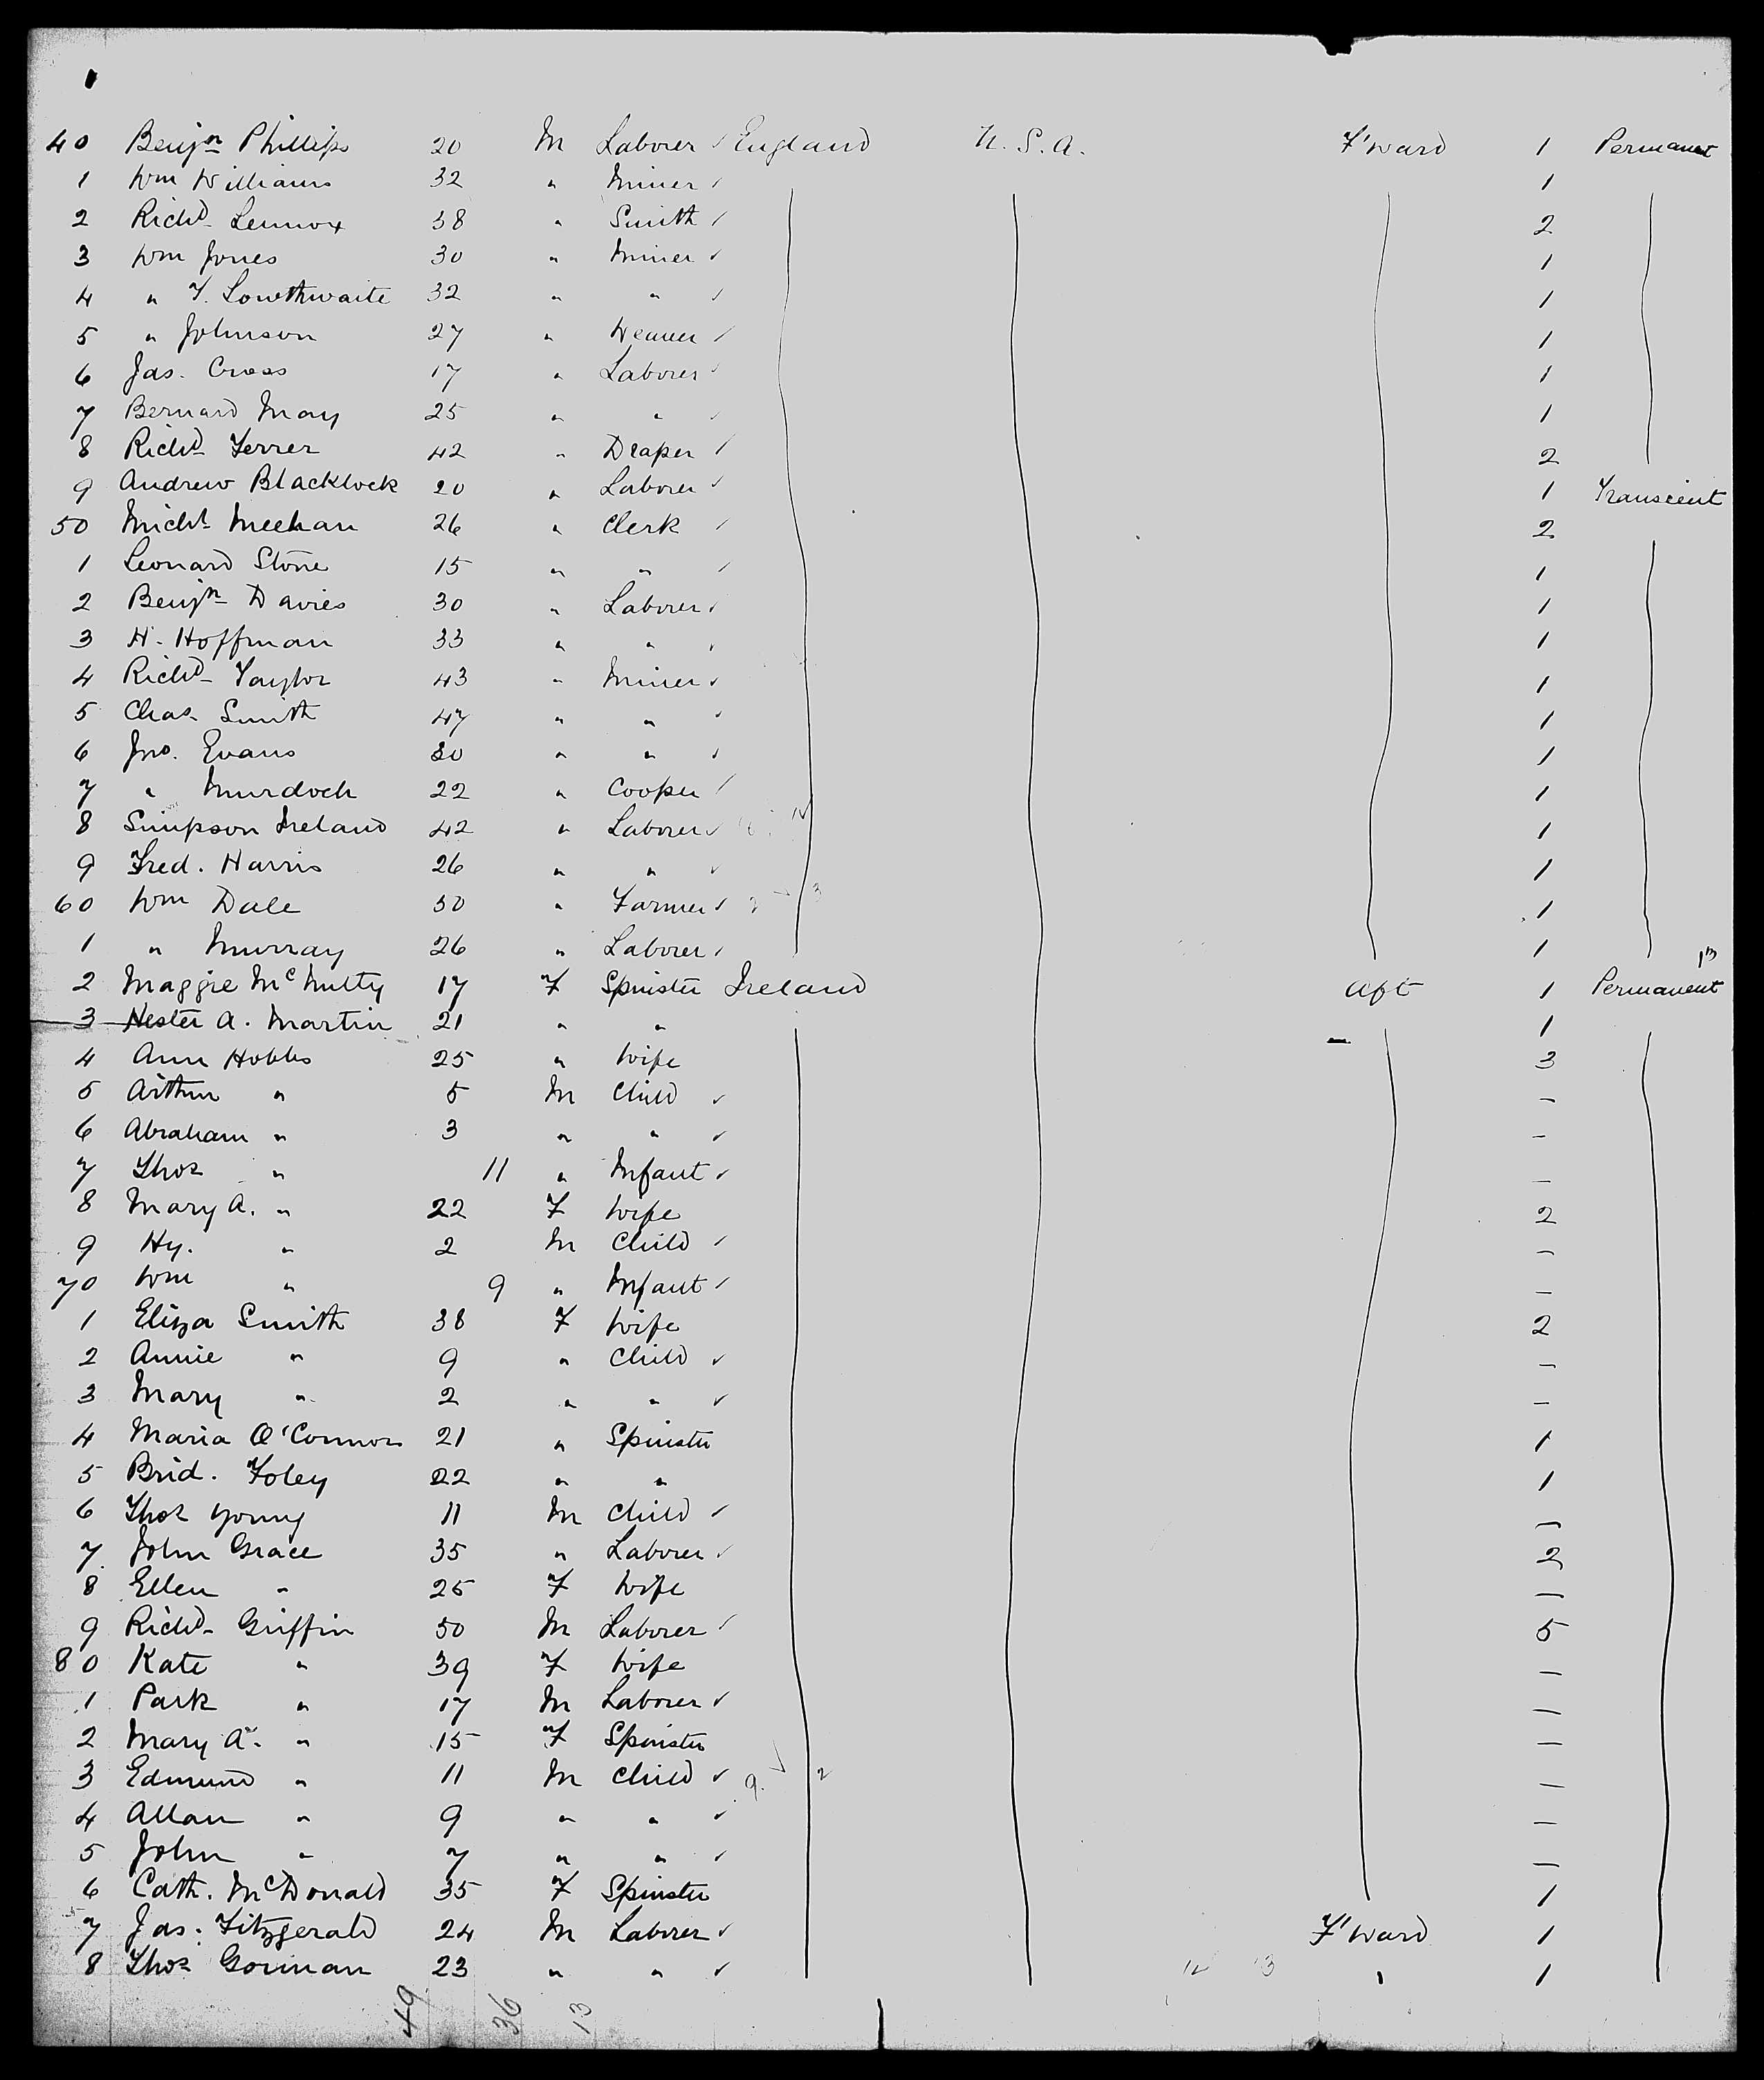 40 Benjn Phillips 20 M Laborer England U.S.A. F'ward 1 Permanent
1 Wm Williams 32 " Miner 1
2 Richd Lennox 38 " Smith 2
3 Wm Jones 30 " Miner 1
4 " T. Lowthwaite 32 " " 1
5 " Johnson 27 " Weaver 1
6 Jas. Cross 17 " Laborer 1
7 Bernard May 25 " " 1
8 Richd Ferrer 42 " Draper 2
9 Andrew Blacklock 20 " Laborer 1 Transcient
50 Michl Meehan 26 " Clerk 2
1 Leonard Stone 15 " " 1
2 Benjn Davies 30 " Laborer 1
3 H. Hoffman 33 " " 1
4 Richd Taylor 43 " Miner 1
5 Chas. Smith 47 " " 1
6 Jno. Evans 30 " " 1
7 " Murdoch 22 " Cooper 1
8 Simpson Ireland 42 " Laborer 1
9 Fred. Harris 26 " " 1
60 Wm Dale 50 " Farmer 1
1 " Murray 26 " Laborer 1
2 Maggie McNulty 17 F Spinster Ireland Aft 1 Permanent
3 Hester A. Martin 21 " " 1
4 Ann Hobbs 25 " Wife 3
5 Arthur " 5 M Child —
6 Abraham " 3 " " —
7 Thos " 11 " Infant —
8 Mary A. " 22 F Wife 2
9 Hy. " 2 M Child —
70 Wm " 9 " Infant —
1 Eliza Smith 38 F Wife 2
2 Annie " 9 " Child —
3 Mary " 2 " " —
4 Maria O'Connor 21 " Spinster 1
5 Brid. Foley 22 " " 1
6 Thos Young 11 M Child —
7 John Grace 35 " Laborer 2
8 Ellen " 25 F Wife —
9 Richd Griffin 50 M Laborer 5
80 Kate " 39 F Wife —
1 Park " 17 M Laborer —
2 Mary A. " 15 F Spinster —
3 Edmund " 11 M Child —
4 Allan " 9 " " —
5 John " 7 " " —
6 Cath. McDonald 35 F Spinster 1
7 Jas. Fitzgerald 24 M Laborer F'ward 1
8 Thos Gorman 23 " " " 1
49 36 13